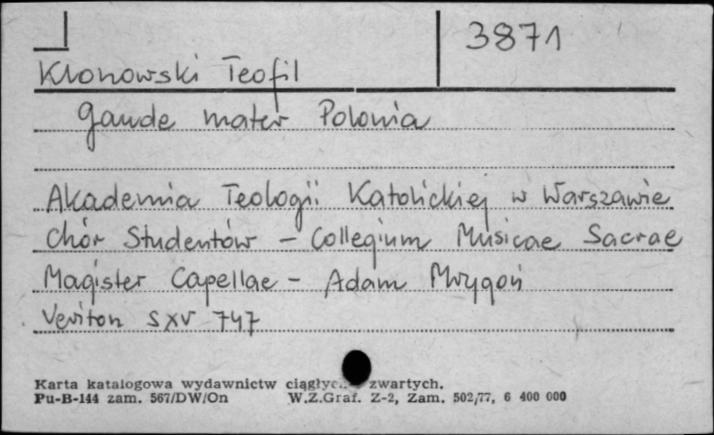 3871
Klonowski Teofil
Gaude mater Polonia
Akademia Teologii Katolickiej w Warszawie
Chór Studentów – Collegium Musicae Sacrae
Magister Capellae – Adam Mrygoń
Veriton SXV 747
Karta katalogowa wydawnictw zwartych.
Pu-B-144 zam. 567/DW/On W.Z.Graf. Z-2, Zam. 502/77, 6 400 000